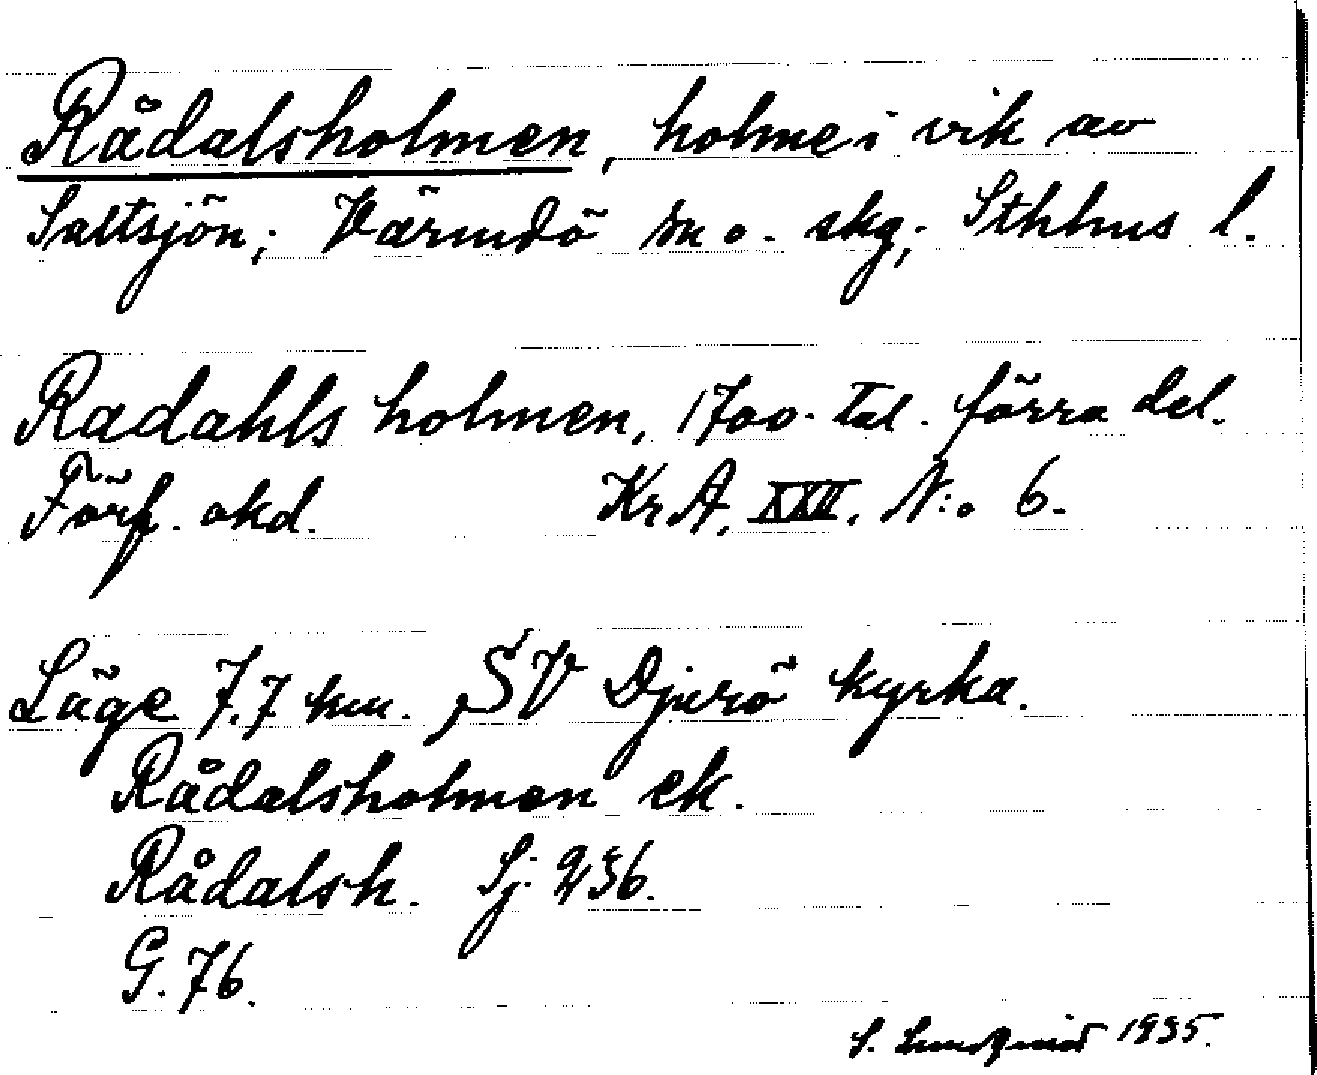 Rådalsholmen, holme i vik av
Saltsjön; Värmdö sn o. skg; Sthlms l.
Radahls holmen, 1700-tal. förra del.
Förf. okd. Kr A, XXII. N:o 6.
Läge 7.7 km. SV Djurö kyrka.
Rådalsholmen ek.
Rådalsh. Sj. 236.
G. 76.
S. Lundqvist 1935.